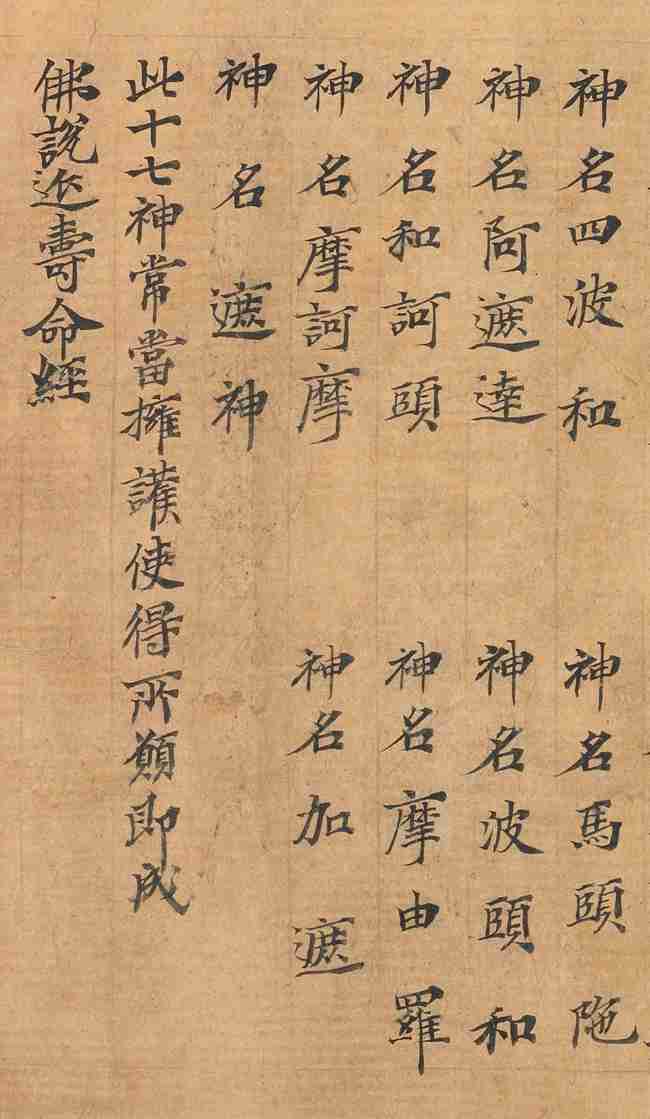 神名四波和　神名馬頤陁
神名阿遮達　神名波頤和
神名和訶頤　神名摩由羅
神名摩訶摩　神名加遮
神名遮神
此十七神常當擁護使得所願即成
佛說延壽命經